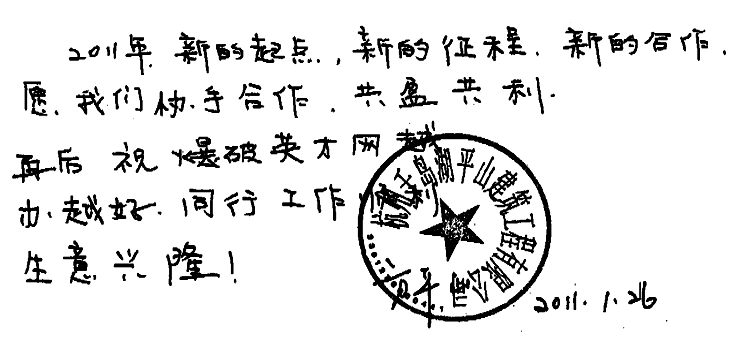 2011年，新的起点，新的征程，新的合作，
愿我们协手合作，共盈共利．
再后祝爆破英才网越
办越好，同行工作
生意兴隆！
杭州千岛湖平山建筑工程有限公司
2011.1.26